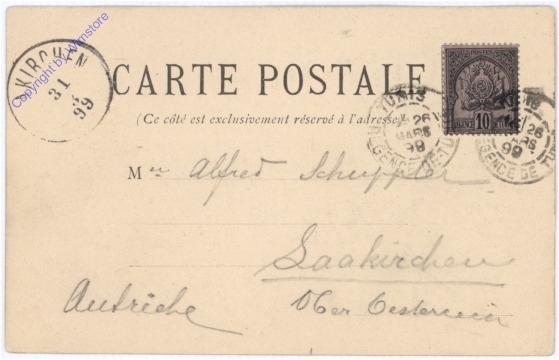 KIRCHEN
31
3
99
Copyright by Wamstore
CARTE POSTALE
(Ce côté est exclusivement réservé à l'adresse)
TUNIS
26
MARS
99
RÉGENCE DE TUNIS
10
26
99
RÉGENCE DE TUNIS
M Alfred Scheppler
Laakirchen
Autriche Ober Oesterreich